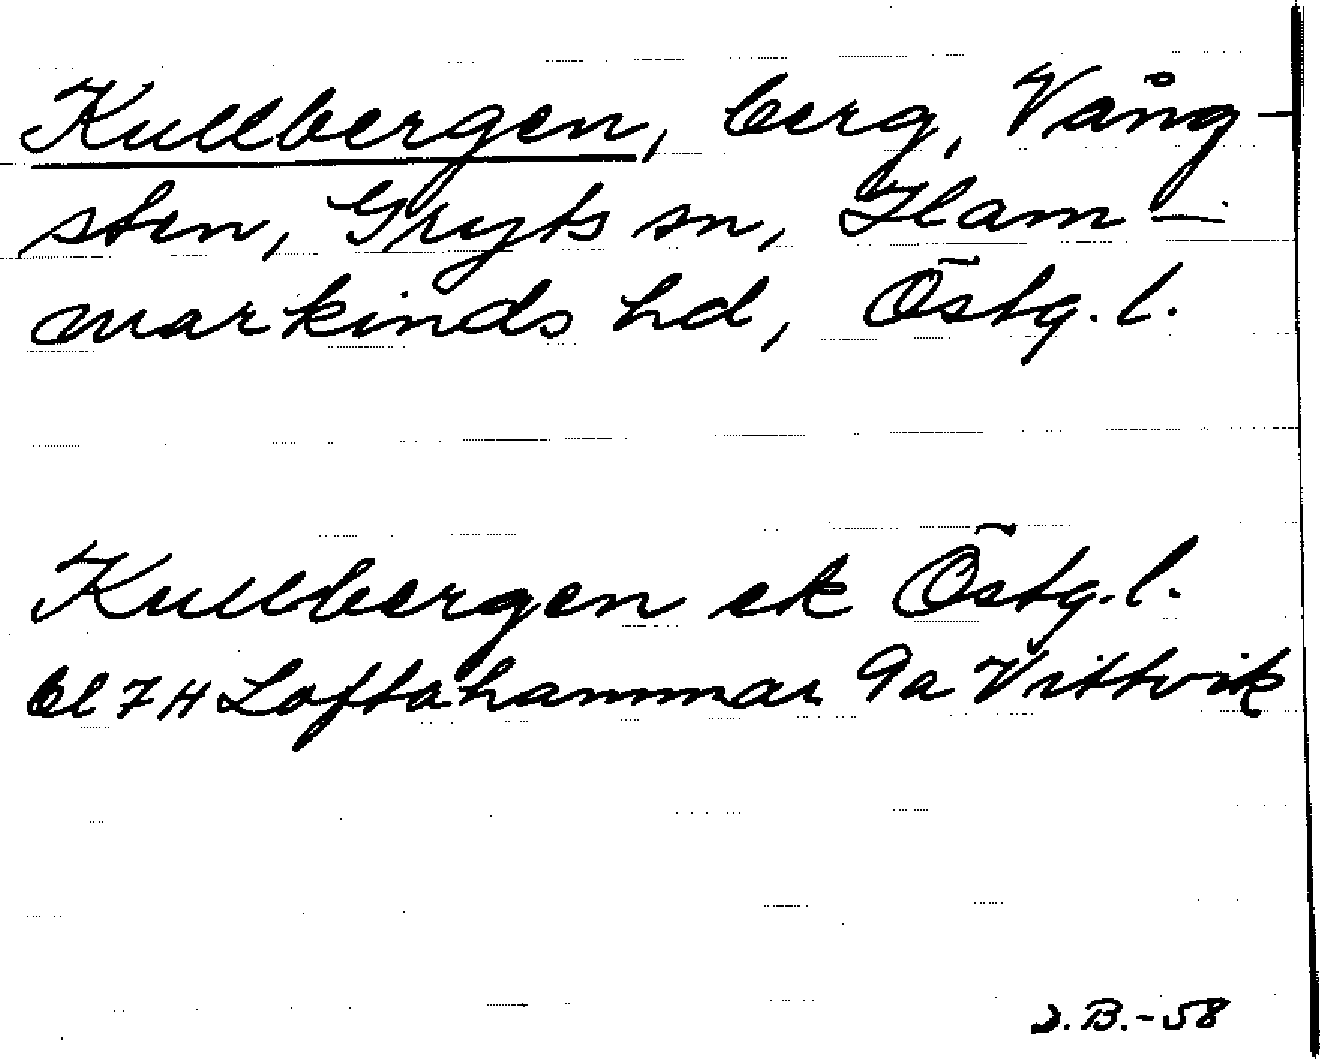 Kullbergen, berg, Vång-
sten, Gryts sn, Ham-
markinds hd, Östg. l.
Kullbergen ek Östg. l.
bl 7 H Loftahammar 9a Vittvik
J.B.-58